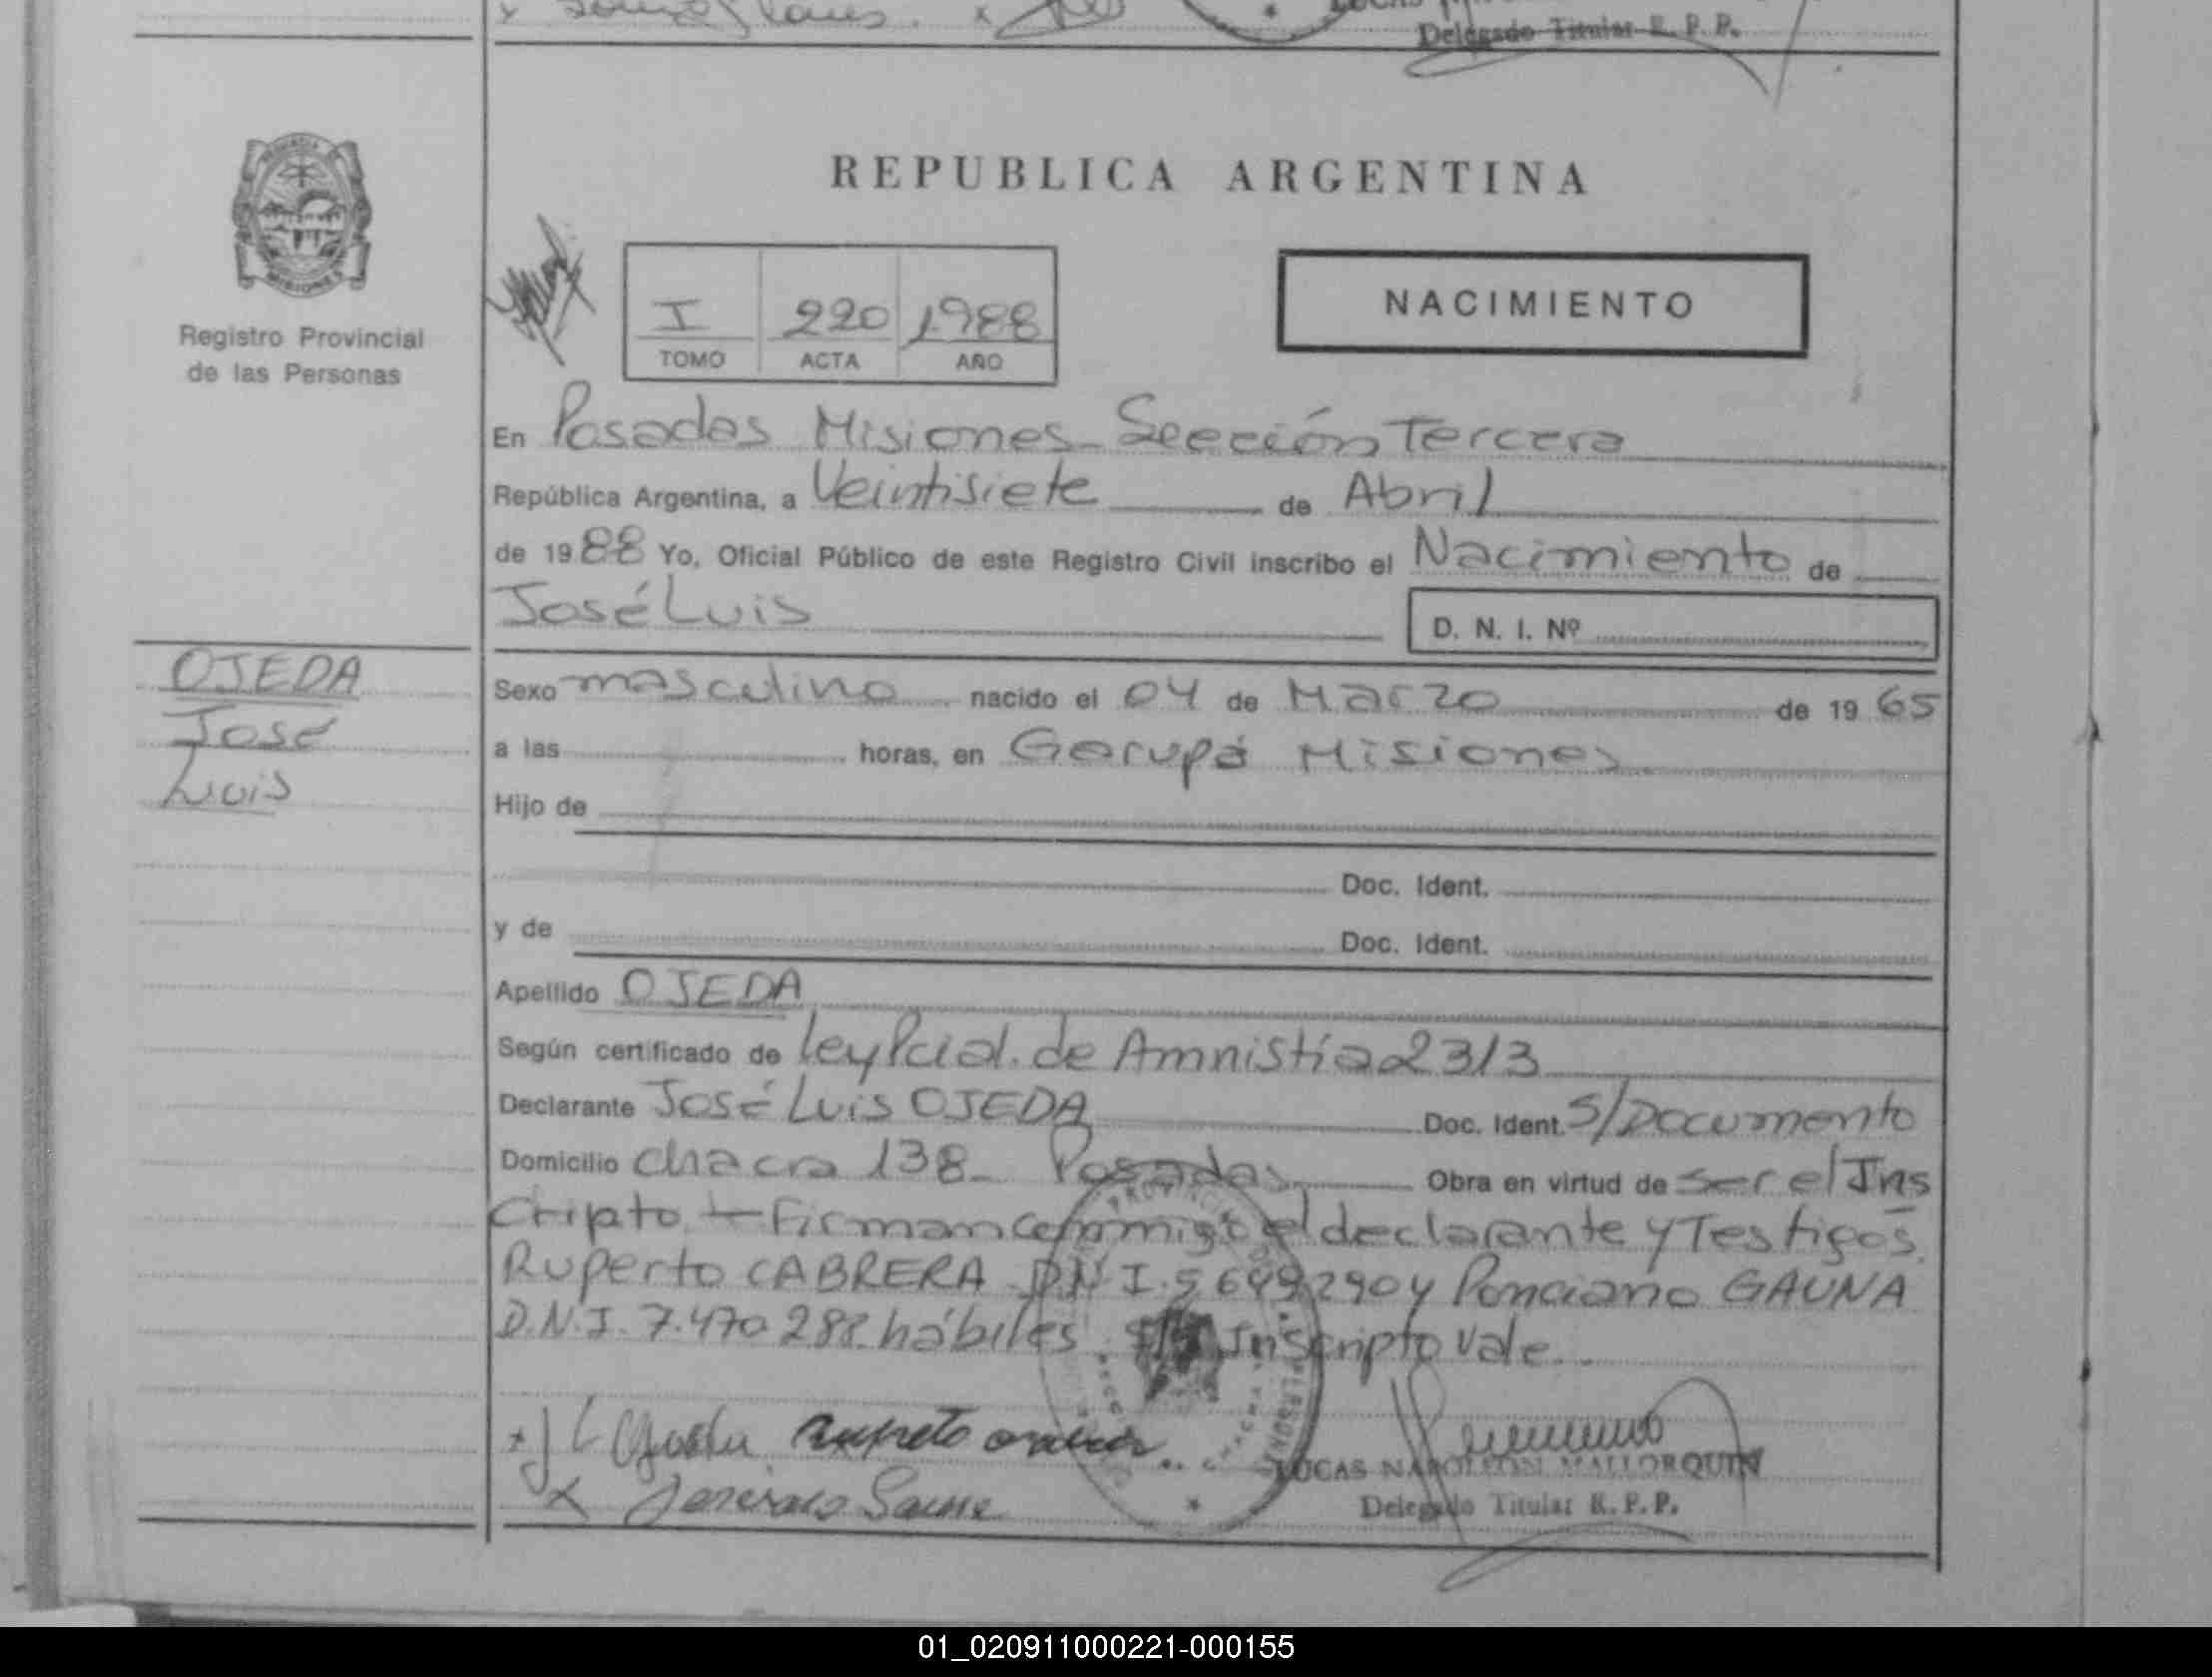 Delegado Titular R. P. P.
PROVINCIA DE
MISIONES
Registro Provincial
de las Personas
REPUBLICA ARGENTINA
I 220 1988
TOMO ACTA AÑO
NACIMIENTO
En Posadas Misiones Sección Tercera
República Argentina, a Veintisiete de Abril
de 1988 Yo, Oficial Público de este Registro Civil inscribo el Nacimiento de
José Luis
D. N. I. Nº
OJEDA
José
Luis
Sexo masculino nacido el 04 de Marzo de 1965
a las horas, en Garupá Misiones
Hijo de
Doc. Ident.
y de Doc. Ident.
Apellido OJEDA
Según certificado de Ley Pcial. de Amnistía 2313
Declarante José Luis OJEDA Doc. Ident. S/Documento
Domicilio Chacra 138- Posadas Obra en virtud de ser el Ins
cripto. - Firman conmigo el declarante y Testigos
Ruperto CABRERA D.N.I. 5649290 y Ponciano GAUNA
D.N.I. 7.470 288 hábiles Inscripto Vale.
LUCAS NAPOLEON MALLORQUIN
Delegado Titular R. P. P.
01_020911000221-000155